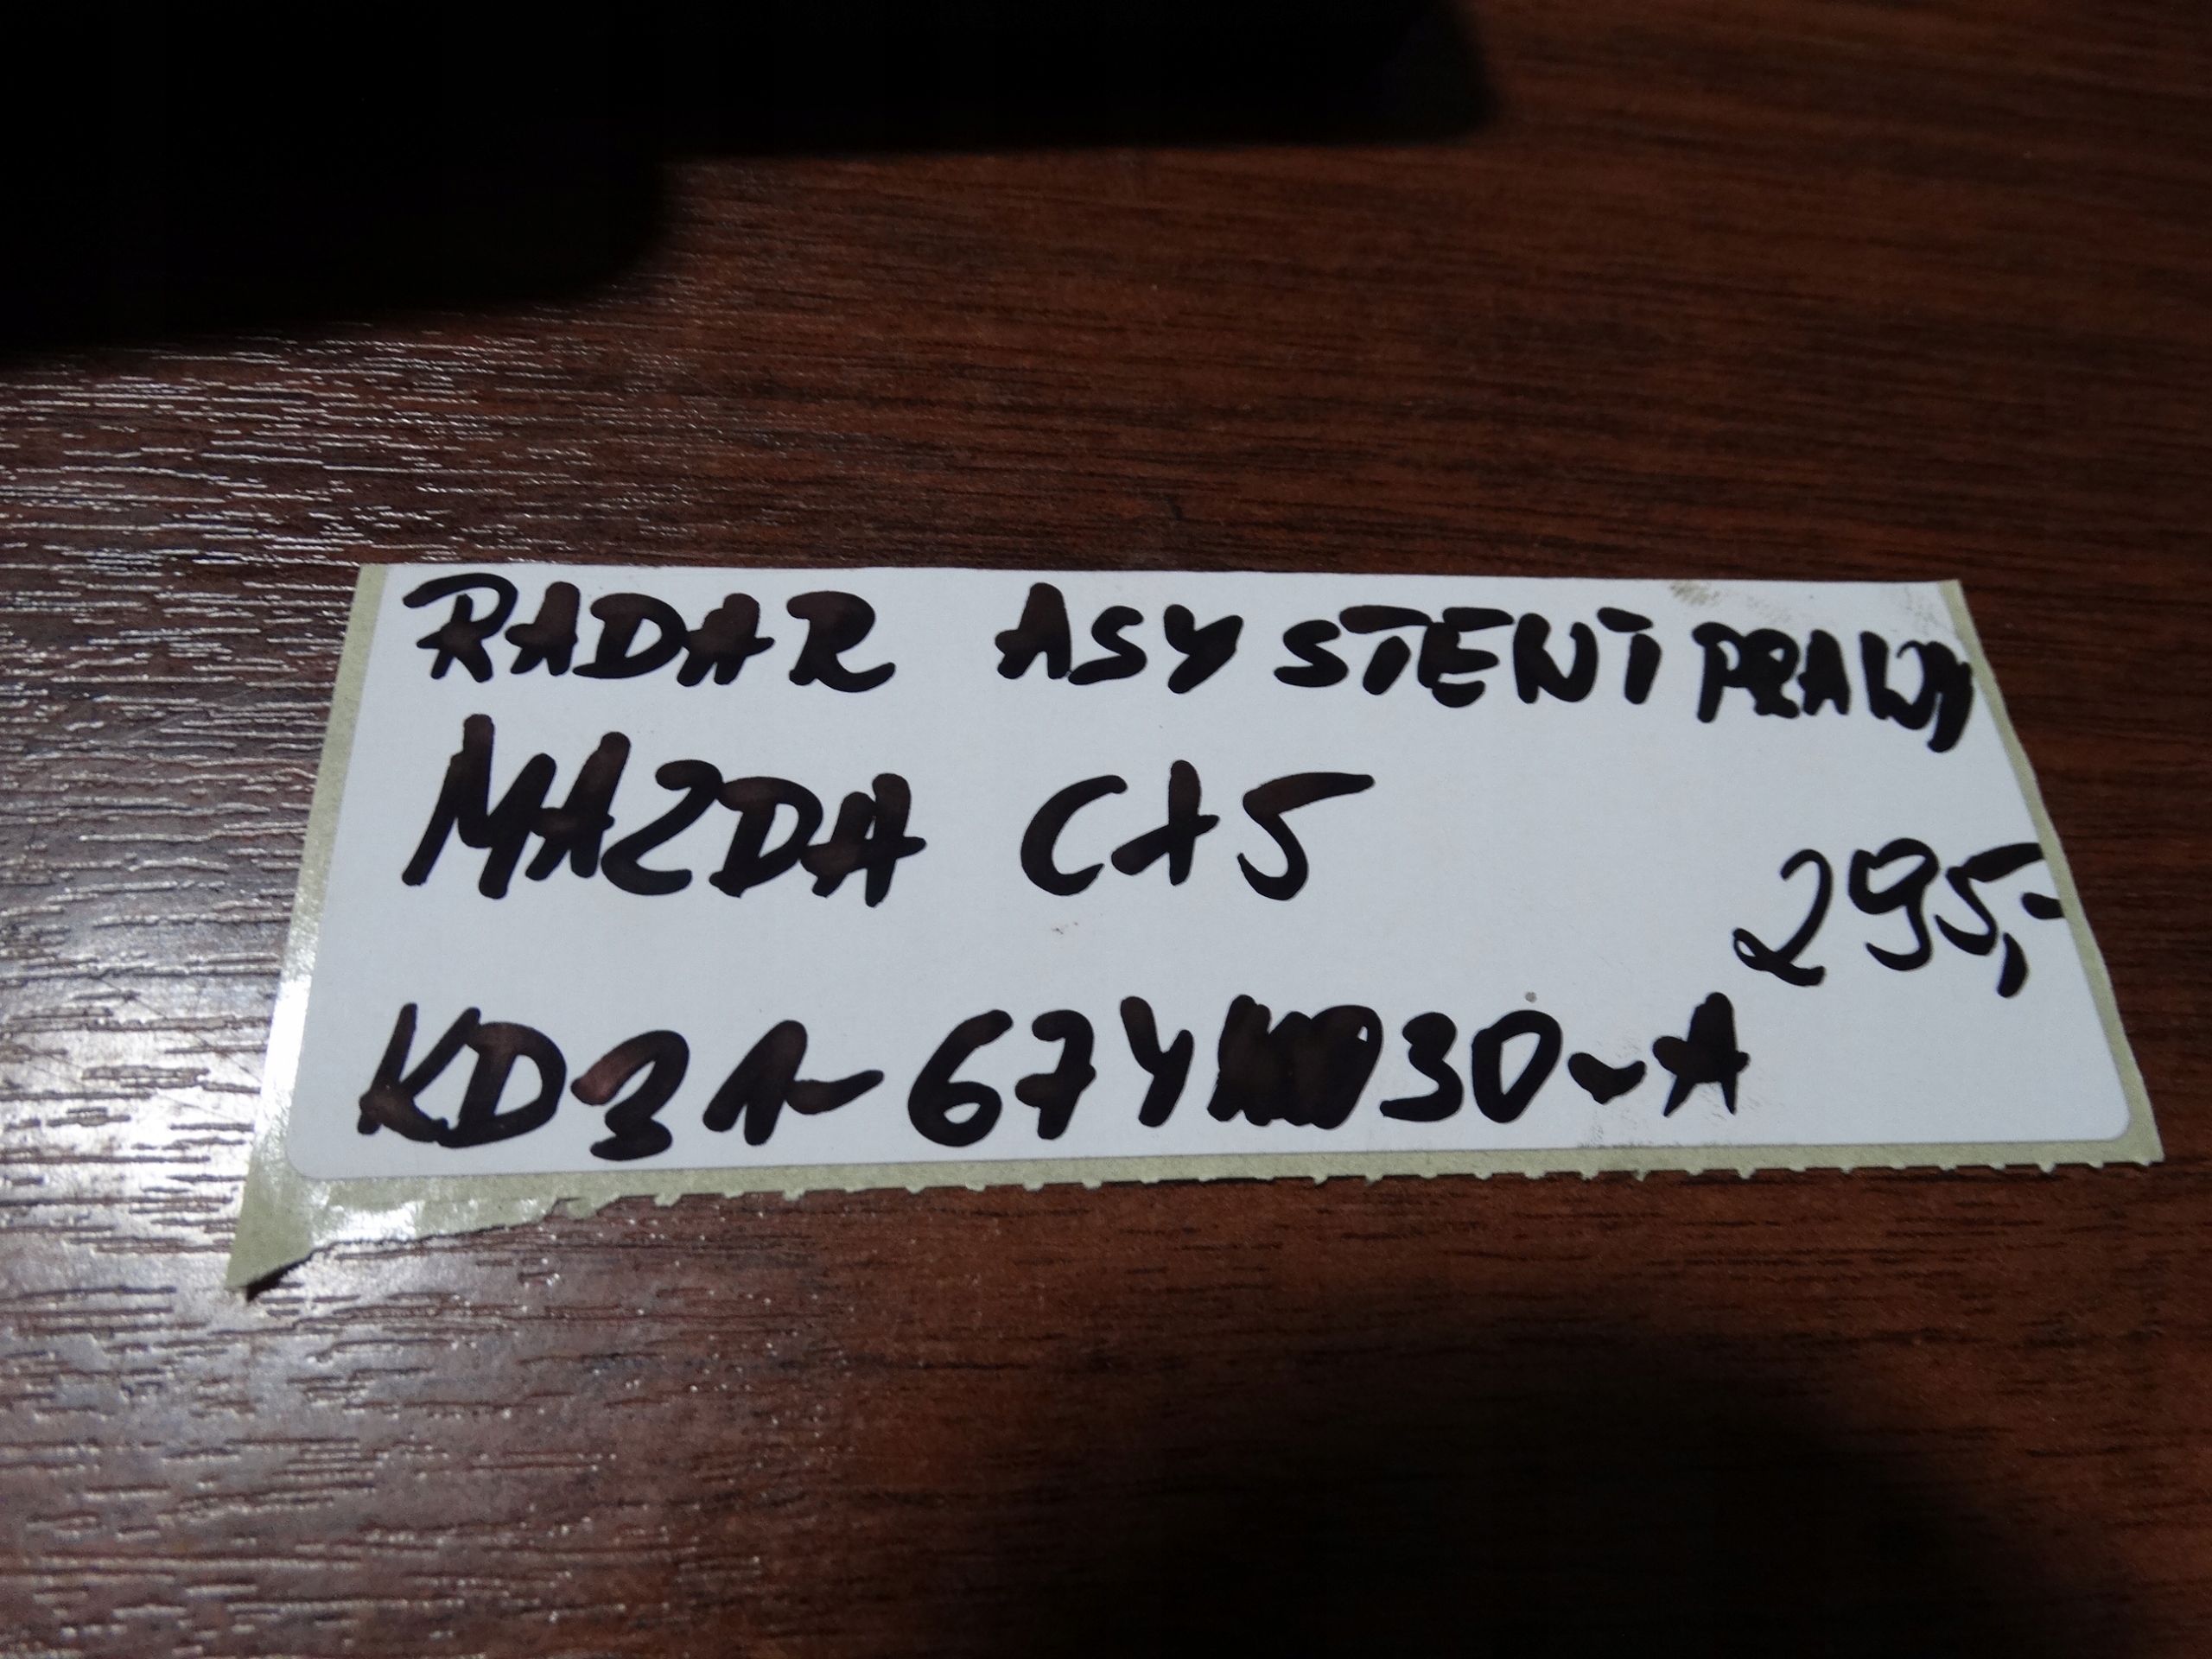 RADAR ASYSTENT PRAWY
MAZDA CX5
295,-
KD31-67Y30-A